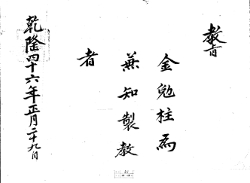 教旨
金勉柱爲
兼知製教
者
乾隆四十六年正月二十九日